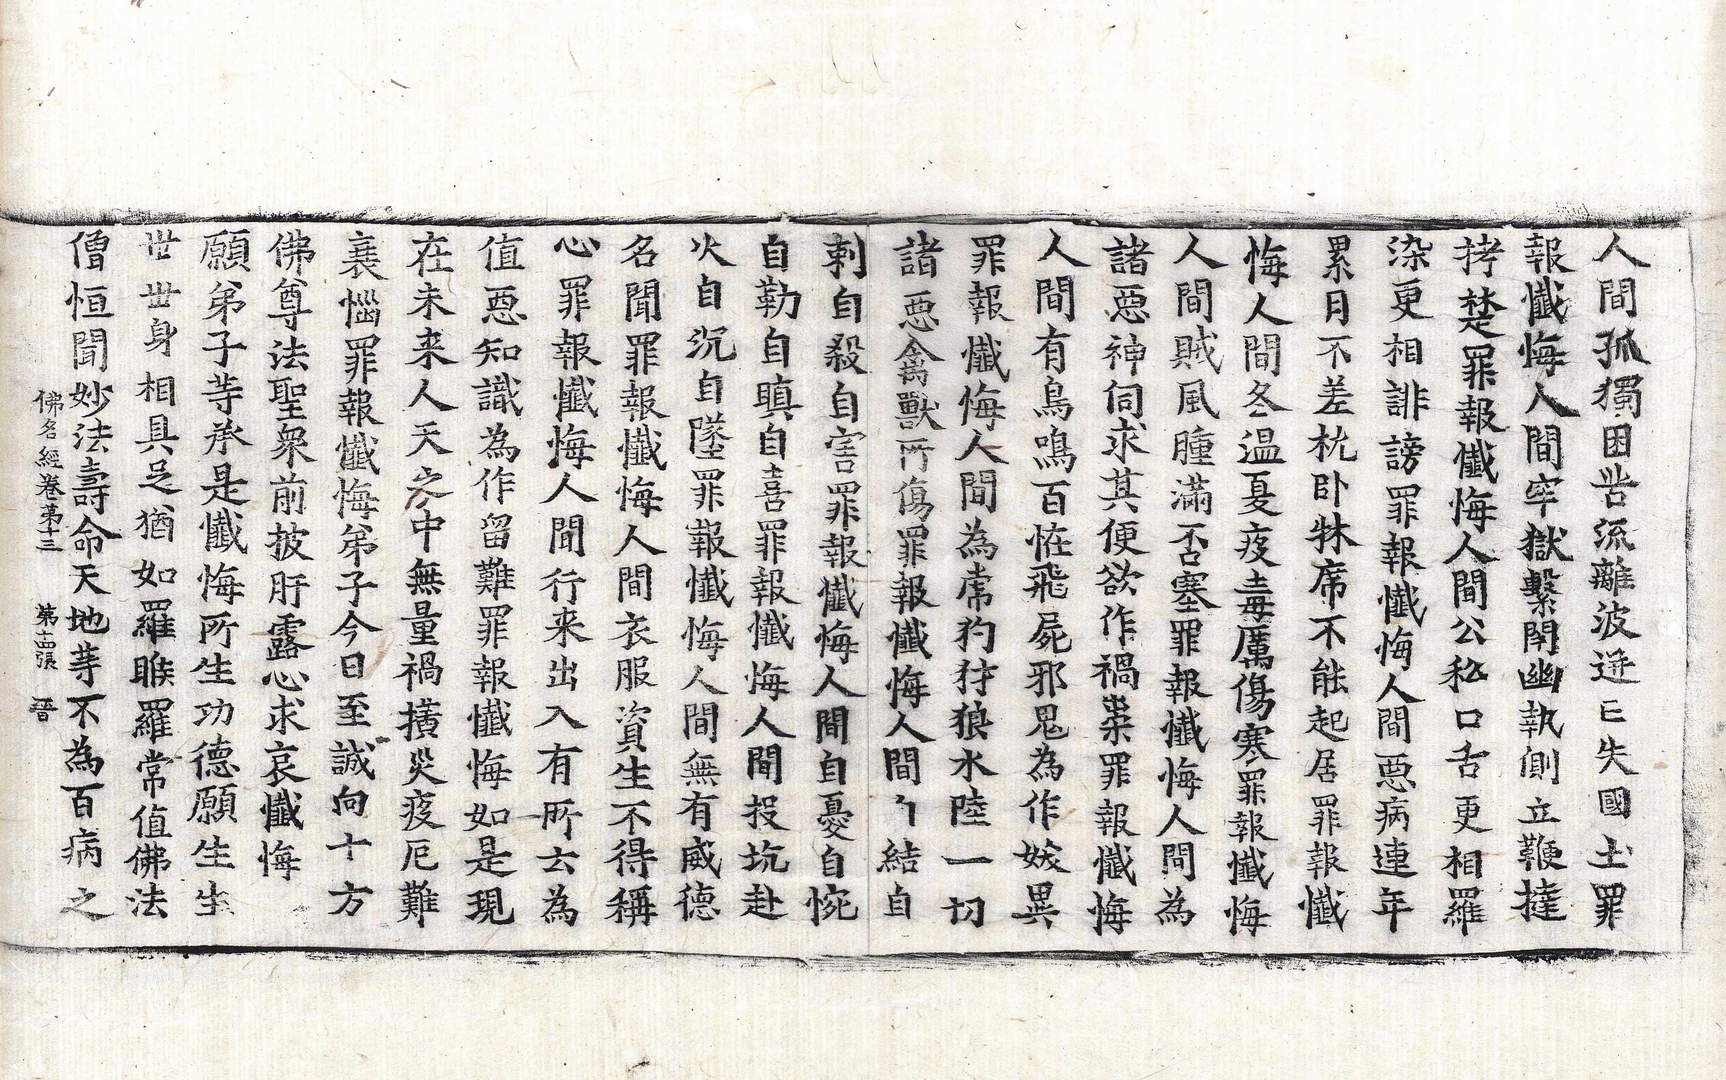 人間孤獨困苦流離波迸亡失國土罪
報懺悔人間牢獄繫閉幽執側立鞭撻
拷楚罪報懺悔人間公私口舌更相羅
染更相誹謗罪報懺悔人間惡病連年
累月不差枕卧牀席不能起居罪報懺
悔人間冬溫夏疫毒厲傷寒罪報懺悔
人間賊風腫滿否塞罪報懺悔人間為
諸惡神伺求其便欲作禍祟罪報懺悔
人間有鳥鳴百恠飛屍邪鬼為作妖異
罪報懺悔人間為虎豹犲狼水陸一切
諸惡禽獸所傷罪報懺悔人間自結自
刺自殺自害罪報懺悔人間自憂自惋
自勒自瞋自喜罪報懺悔人間投坑赴
火自沉自墜罪報懺悔人間無有威德
名聞罪報懺悔人間衣服資生不得稱
心罪報懺悔人間行来出入有所去為
值惡知識為作留難罪報懺悔如是現
在未来人天之中無量禍橫災疫厄難
衰惱罪報懺悔弟子今日至誠向十方
佛尊法聖衆前披肝露心求哀懺悔
願弟子等承是懺悔所生功德願生生
世世身相具足猶如羅睺羅常值佛法
僧恒聞妙法壽命天地等不為百病之
佛名經卷第十三　第十四張